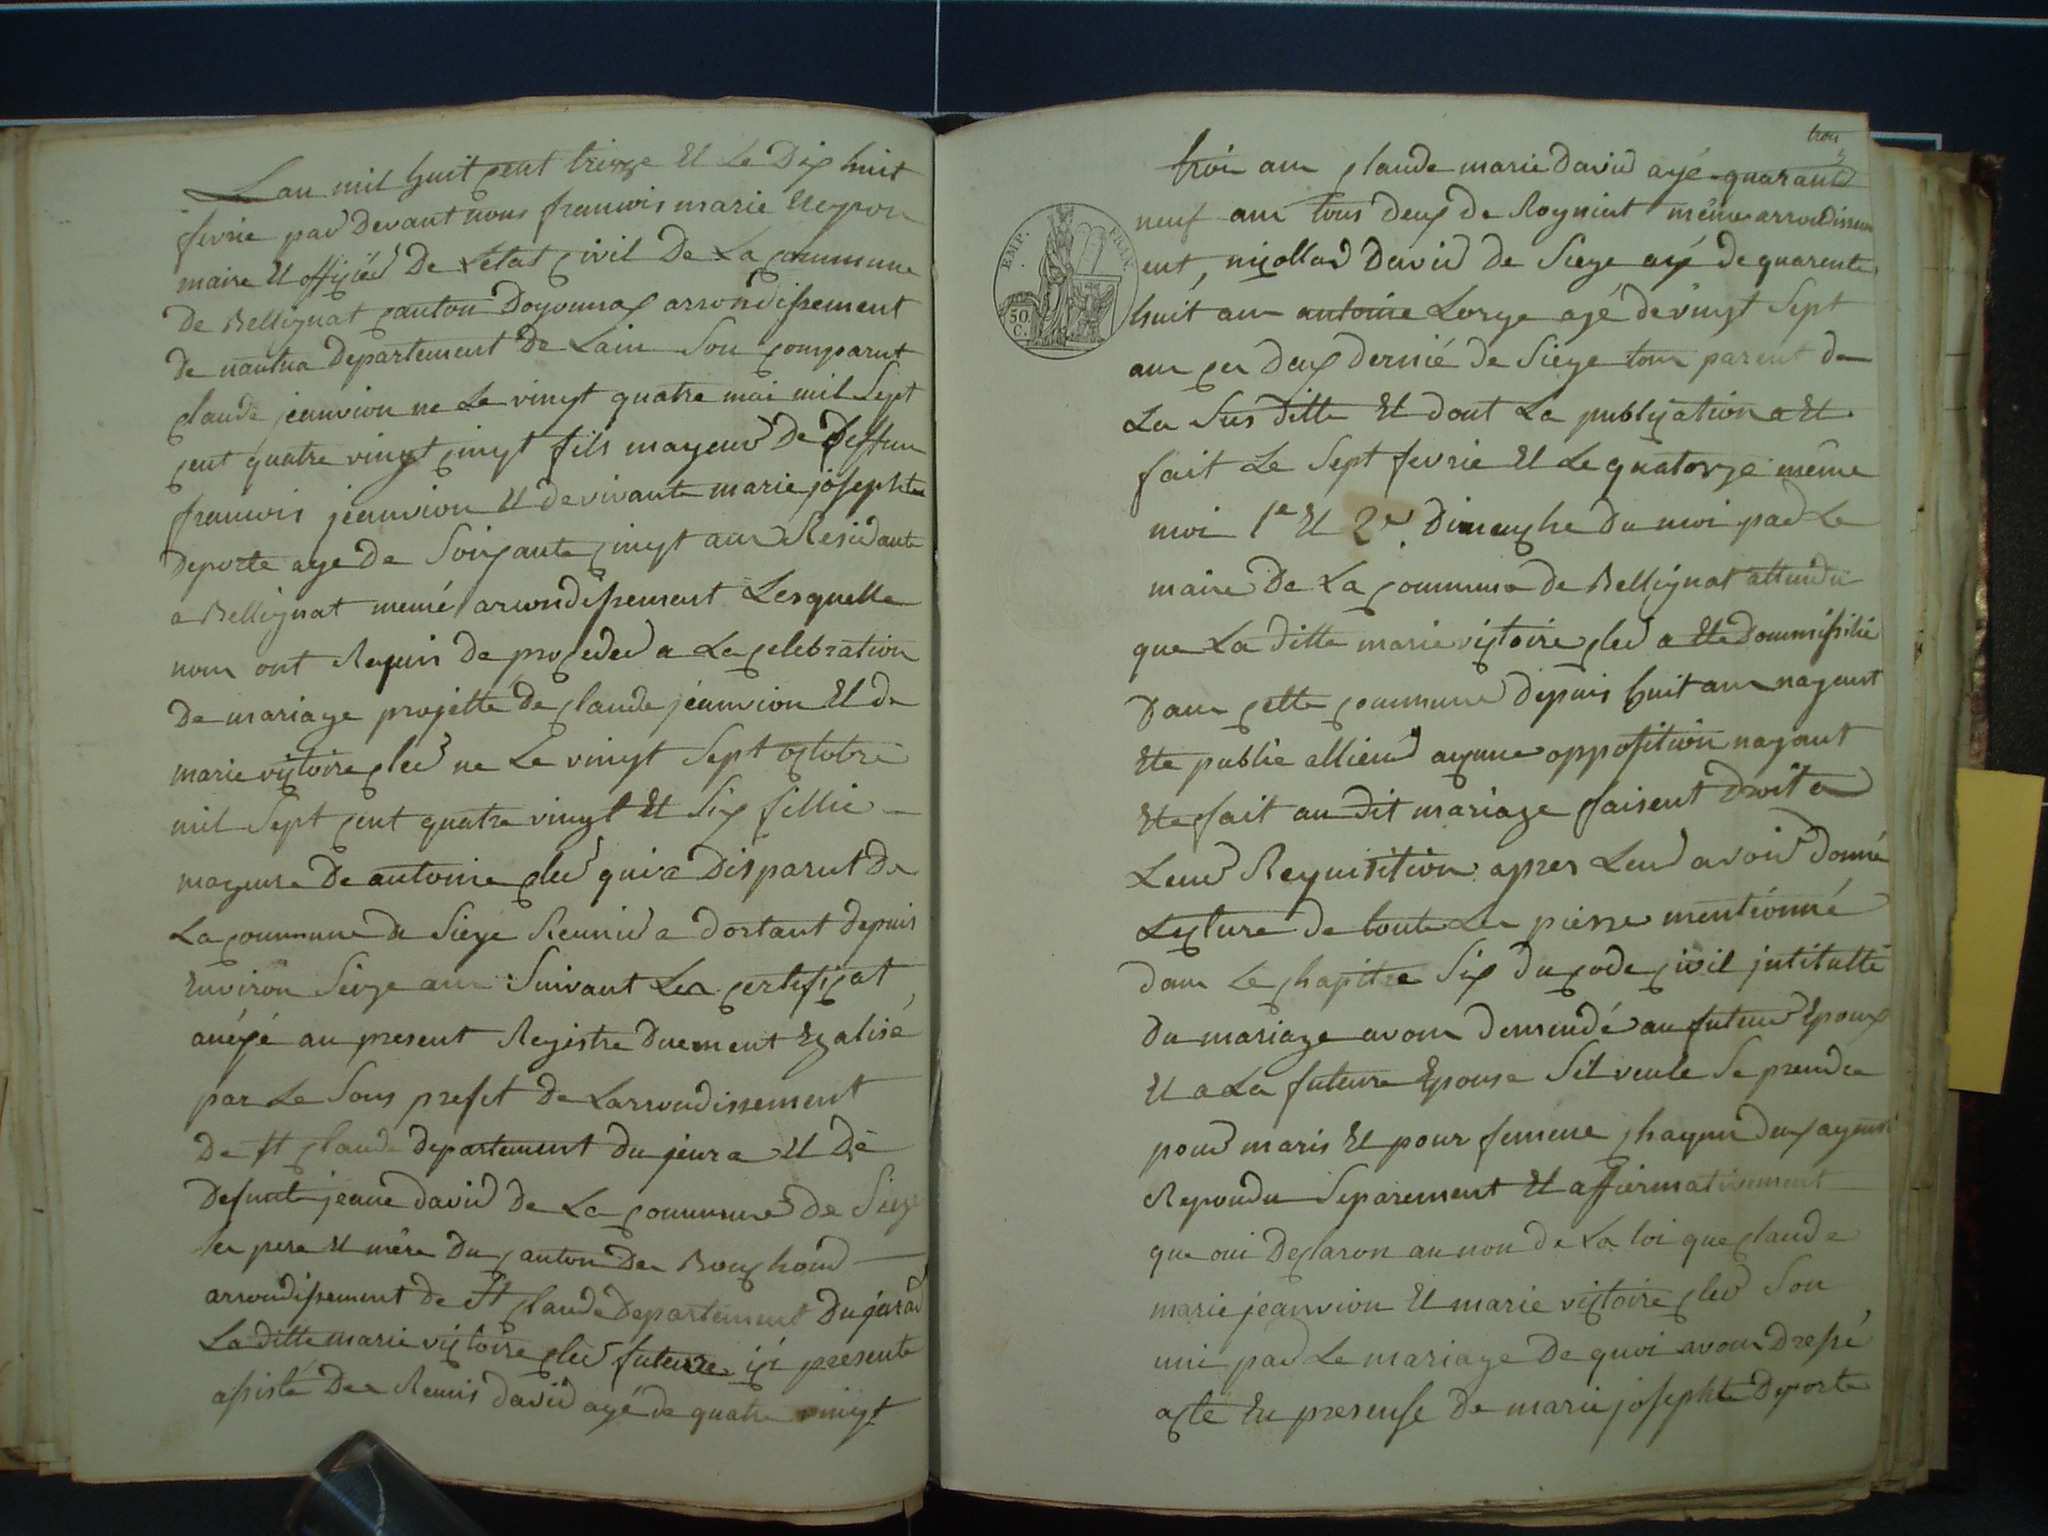 Lan mil huit cent treize Et Le Dix huit
fevrie par Devant nous francois marie Neyron
maire Et officier De Letat civil De La commune
De Bellignat canton Doyonnax arrondissement
De nantua Departement De Lain Son comparut
claude jeanvion ne Le vingt quatre mai mil Sept
cent quatre vingt cinqt fils mayeur De Deffun
francois jeanvion Et de vivante marie josephte
Deporte age De Soixante cinqt ans Residante
a Bellignat meme arrondissement Lesquelle
nous ont Requis De proceder a La celebration
De mariage projetté De claude jeanvion Et De
marie victoire cler ne Le vingt Sept octobre
mil Sept cent quatre vingt Et Six fillie
mayeure De antoine cler qui a Disparut De
La commune de Siege Reunie a Dortant Depuis
Environ Seize ans Suivant Les certificat
anéxé au present Registre Duement Egalisé
par Le Sous prefet De Larrondissement
De St claude departement du jeura Et De
Defunte jeane david De La commune De Siege
ses pere Et mére Du canton Des Bouchoud
arrondissement de St claude Departement Du jura
La ditte marie victoire cler future ici presente
assisté De Remis david agé de quatre vingt
trois
3
EMP. FRAN.
50 C.
trois ans claude marie David agé quarante
neuf ans tous deux de Rogniat même arrondissem
ent, nicollas David de Siege agé de quarente
huit ans antoine Lorge agé de vingt Sept
ans ces deux dernié de Siege tous parent de
La Sus ditte Et dont La publication a Et
fait Le Sept fevrie Et Le quatorze même
moi 1e Et 2e Dimenche Du moi par Le
maire De La commune de Bellignat attendu
que La ditte marie victoire cler a Ete Dommissilié
Dans cette commune depuis huit ans nayant
Ete publié allieurs aucune opposition nayant
Ete fait au dit mariage faisent Droit a
Leur Requisition apres Leur avoir donné
Lecture De toute Les piesse mentionné
dans Le chapitre Six du code civil intitullé
Du mariage avons demendé au future Epoux
Et a La future Epouse Sil veule Se prendre
pour maris Et pour femme chacun Deux ayant
Repondu Séparement Et affirmativement
que oui Declaron au non de La loi que claude
marie jeanvion Et marie victoire cler Son
uni par Le mariage De quoi avons Dressé
acte En presense De marie josephte Deporte